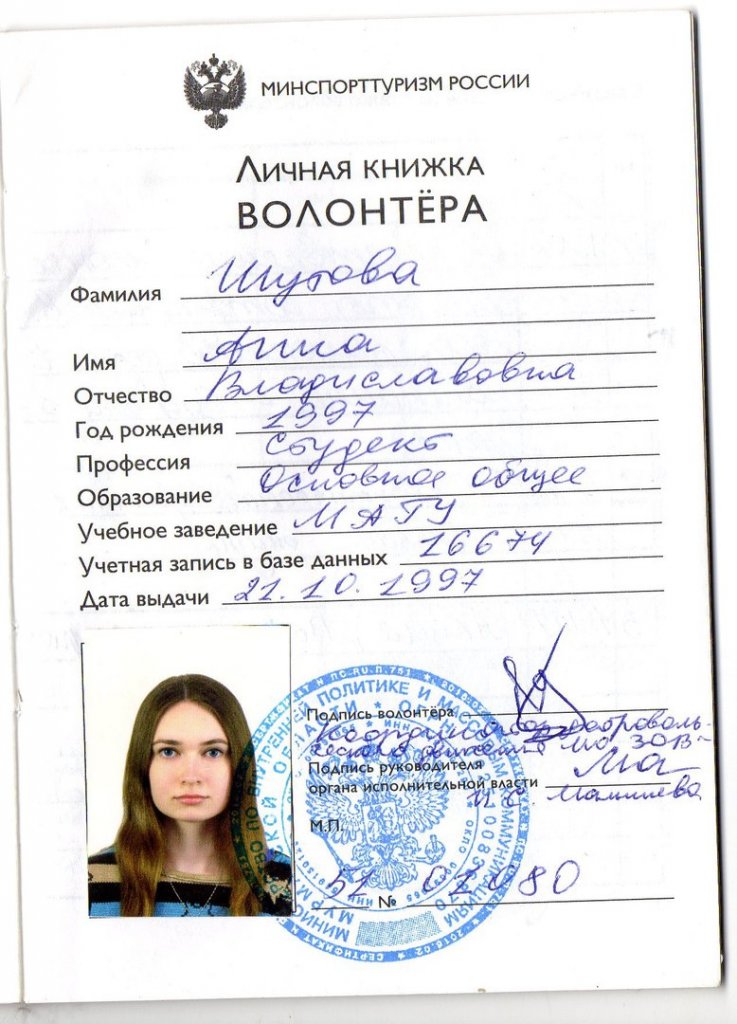 МИНСПОРТТУРИЗМ РОССИИ
ЛИЧНАЯ КНИЖКА
ВОЛОНТЁРА
Фамилия Шутова
Имя Анна
Отчество Владиславовна
Год рождения 1997
Профессия Студент
Образование Основное общее
Учебное заведение МАГУ
Учетная запись в базе данных 16674
Дата выдачи 21.10.1997
Подпись волонтёра
Подпись руководителя
органа исполнительной власти
М.П.
51 № 02080
ВНУТРЕННЕЙ ПОЛИТИКЕ И
КОММУНИКАЦИЯМ